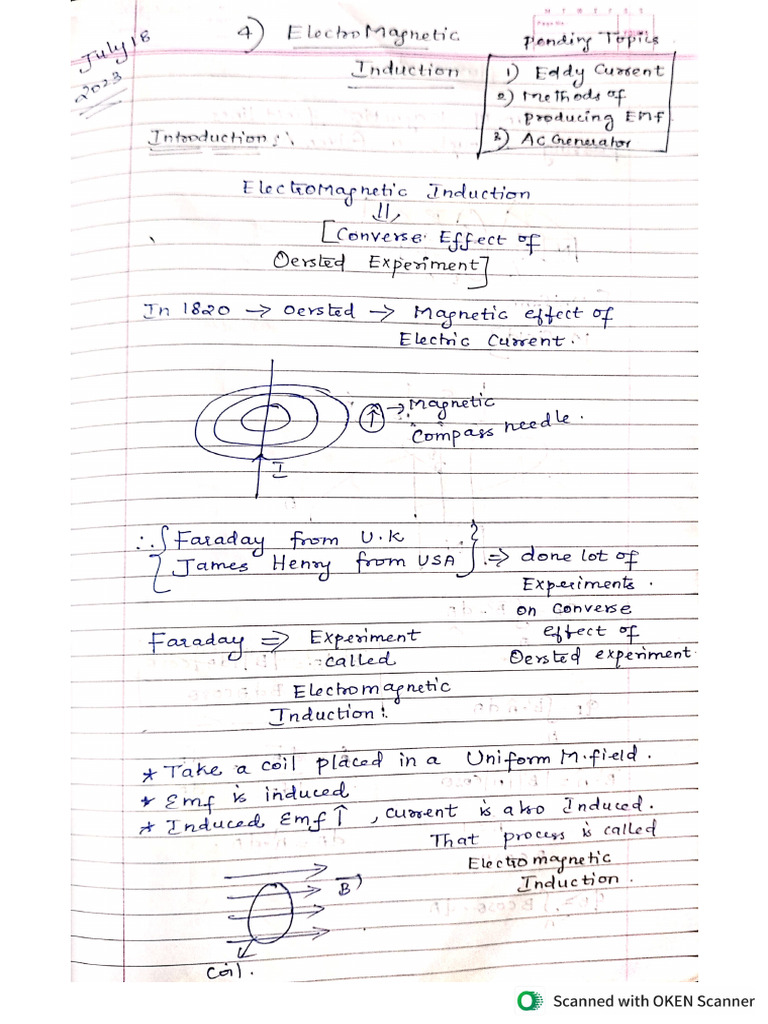 July 18
2023
4) ElectroMagnetic
Induction
M T W T F S S
Page No
Pending Topics
1) Eddy Current
2) Methods of
producing EMf
3) AC Generator
Introduction:
ElectroMagnetic Induction
⇓
[Converse Effect of
Oersted Experiment]
In 1820 → Oersted → Magnetic effect of
Electric Current.
→ Magnetic
Compass needle.
I
∴ { Faraday from U.K
James Henry from USA } ⇒ done lot of
Experiments.
on converse
effect of
Oersted experiment
Faraday ⇒ Experiment
called
Electromagnetic
Induction:
* Take a coil placed in a Uniform M.field.
* Emf is induced
* Induced Emf ↑, current is also Induced.
That process is called
Electromagnetic
Induction.
B
Coil.
Scanned with OKEN Scanner